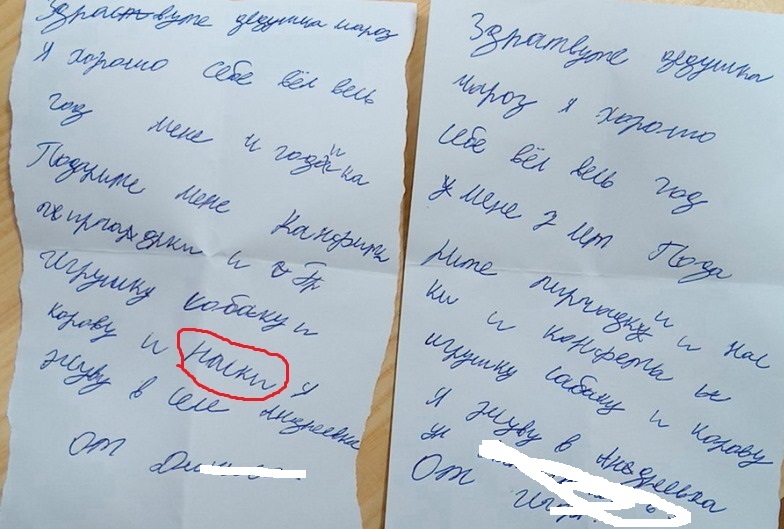 Здраствуте дедушка мароз
Я хорошо себе вёл весь
год мене и годика
Подарите мене канфиты
и
игрушку собаку и
корову и наски я
живу в селе Андреевка
От
Здратвуте дедушка
мароз я хорошо
себе вёл весь год
у мене 7 лет Пода
рите пирчатки и нас
ки и конфеты и
игрушку сабаку и корову
Я живу в Андреевка
От